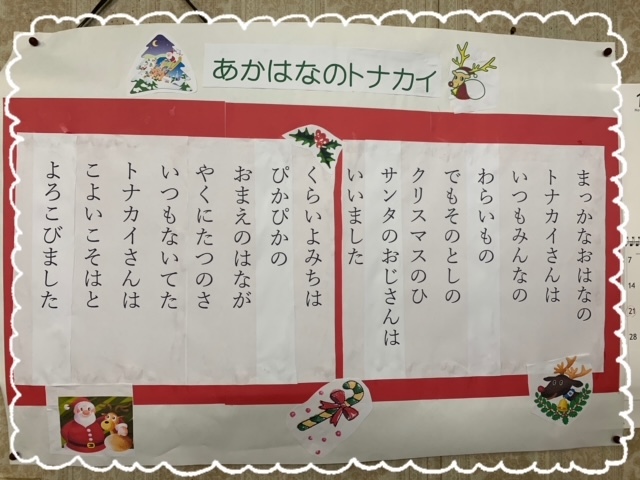 あかはなのトナカイ
まっかなおはなの
トナカイさんは
いつもみんなの
わらいもの
でもそのとしの
クリスマスのひ
サンタのおじさんは
いいました
くらいよみちは
ぴかぴかの
おまえのはなが
やくにたつのさ
いつもないてた
トナカイさんは
こよいこそはと
よろこびました
7
14
21
28